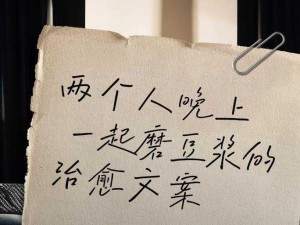 两个人晚上
一起磨豆浆的
治愈文案